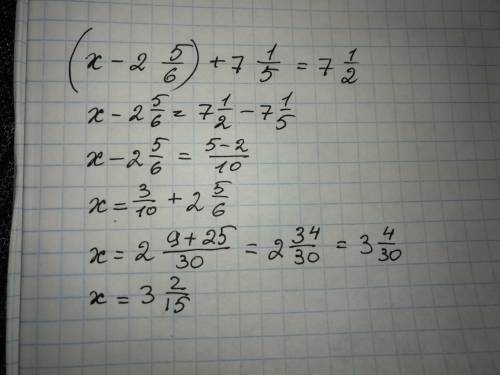 (x - 2 5/6) + 7 1/5 = 7 1/2
x - 2 5/6 = 7 1/2 - 7 1/5
x - 2 5/6 = (5-2)/10
x = 3/10 + 2 5/6
x = 2 (9+25)/30 = 2 34/30 = 3 4/30
x = 3 2/15